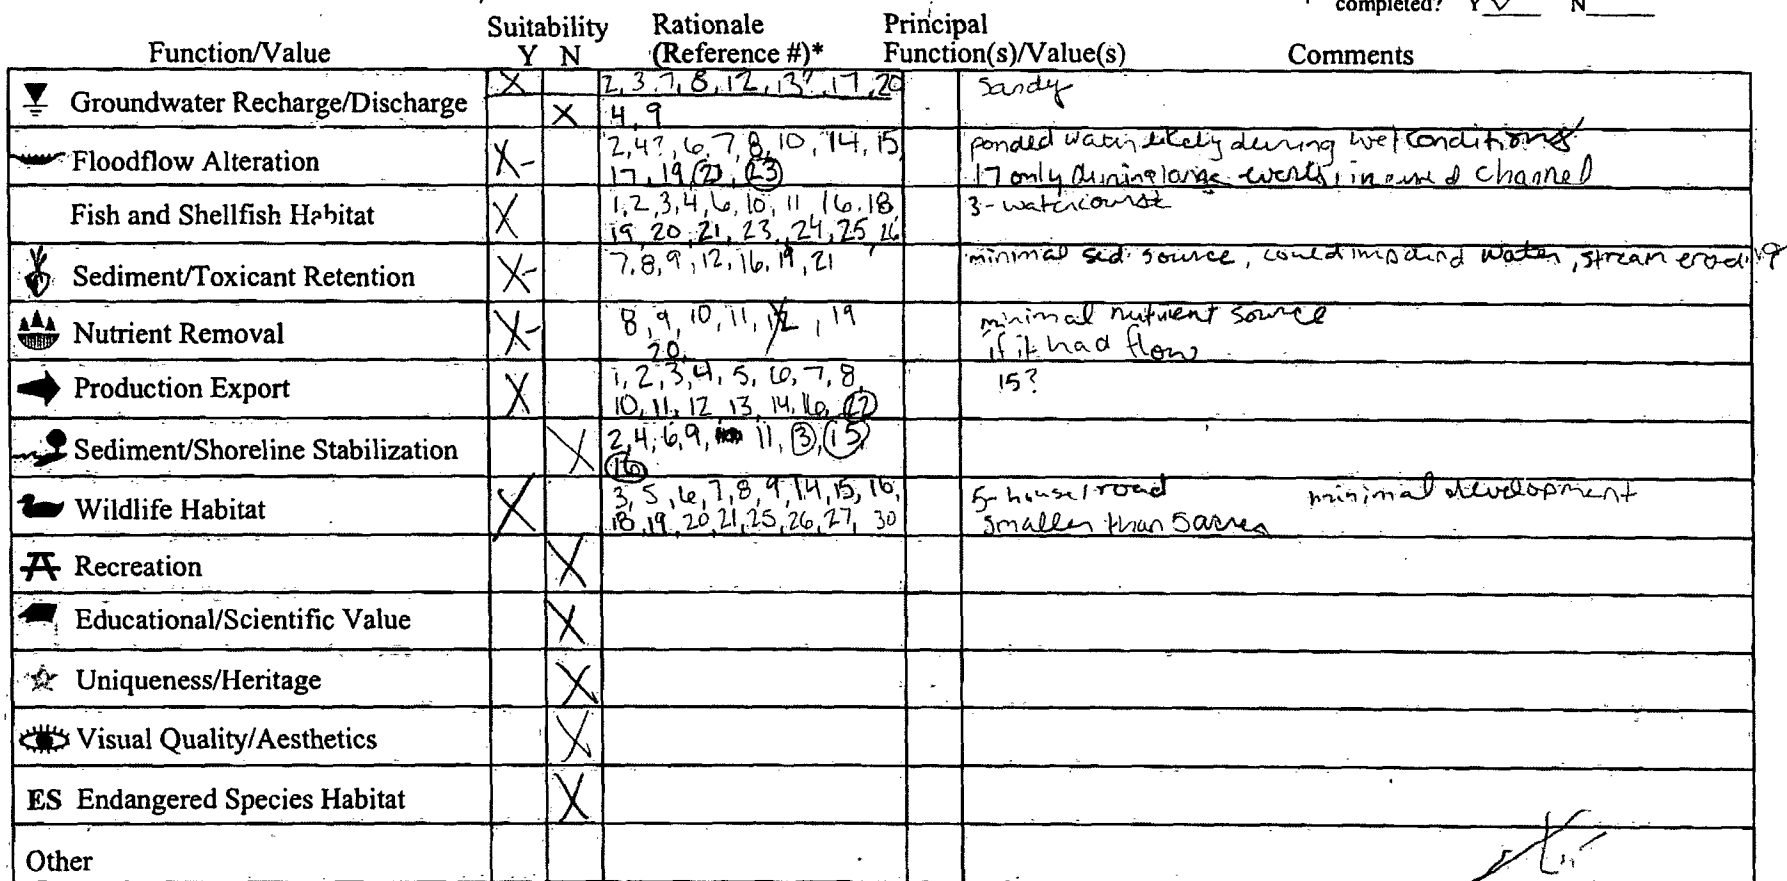 completed? Y ✓ N
Suitability Rationale Principal
Function/Value Y N (Reference #)* Function(s)/Value(s) Comments
Groundwater Recharge/Discharge X 2, 3, 7, 8, 12, 13?, 17, 20 Sandy
X 4, 9
Floodflow Alteration X- 2, 4?, 6, 7, 8, 10, 14, 15 ponded water likely during wet conditions
17, 19, 21, 23 17 only during large events, incised channel
Fish and Shellfish Habitat X 1, 2, 3, 4, 6, 10, 11, 16, 18 3-watercourse
19, 20, 21, 23, 24, 25, 26
Sediment/Toxicant Retention X- 7, 8, 9, 12, 16, 19, 21 minimal sed. source, could impound water, stream eroding
Nutrient Removal X- 8, 9, 10, 11, 12, 19 minimal nutrient source
20 if it had flow
Production Export X 1, 2, 3, 4, 5, 6, 7, 8 15?
10, 11, 12, 13, 14, 16, 22
Sediment/Shoreline Stabilization X 2, 4, 6, 9, 11, 3, 15
16
Wildlife Habitat X 3, 5, 6, 7, 8, 9, 14, 15, 16, 5-house/road minimal development
18, 19, 20, 21, 25, 26, 27, 30 smaller than 5 acres
Recreation X
Educational/Scientific Value X
Uniqueness/Heritage X
Visual Quality/Aesthetics X
ES Endangered Species Habitat X
Other